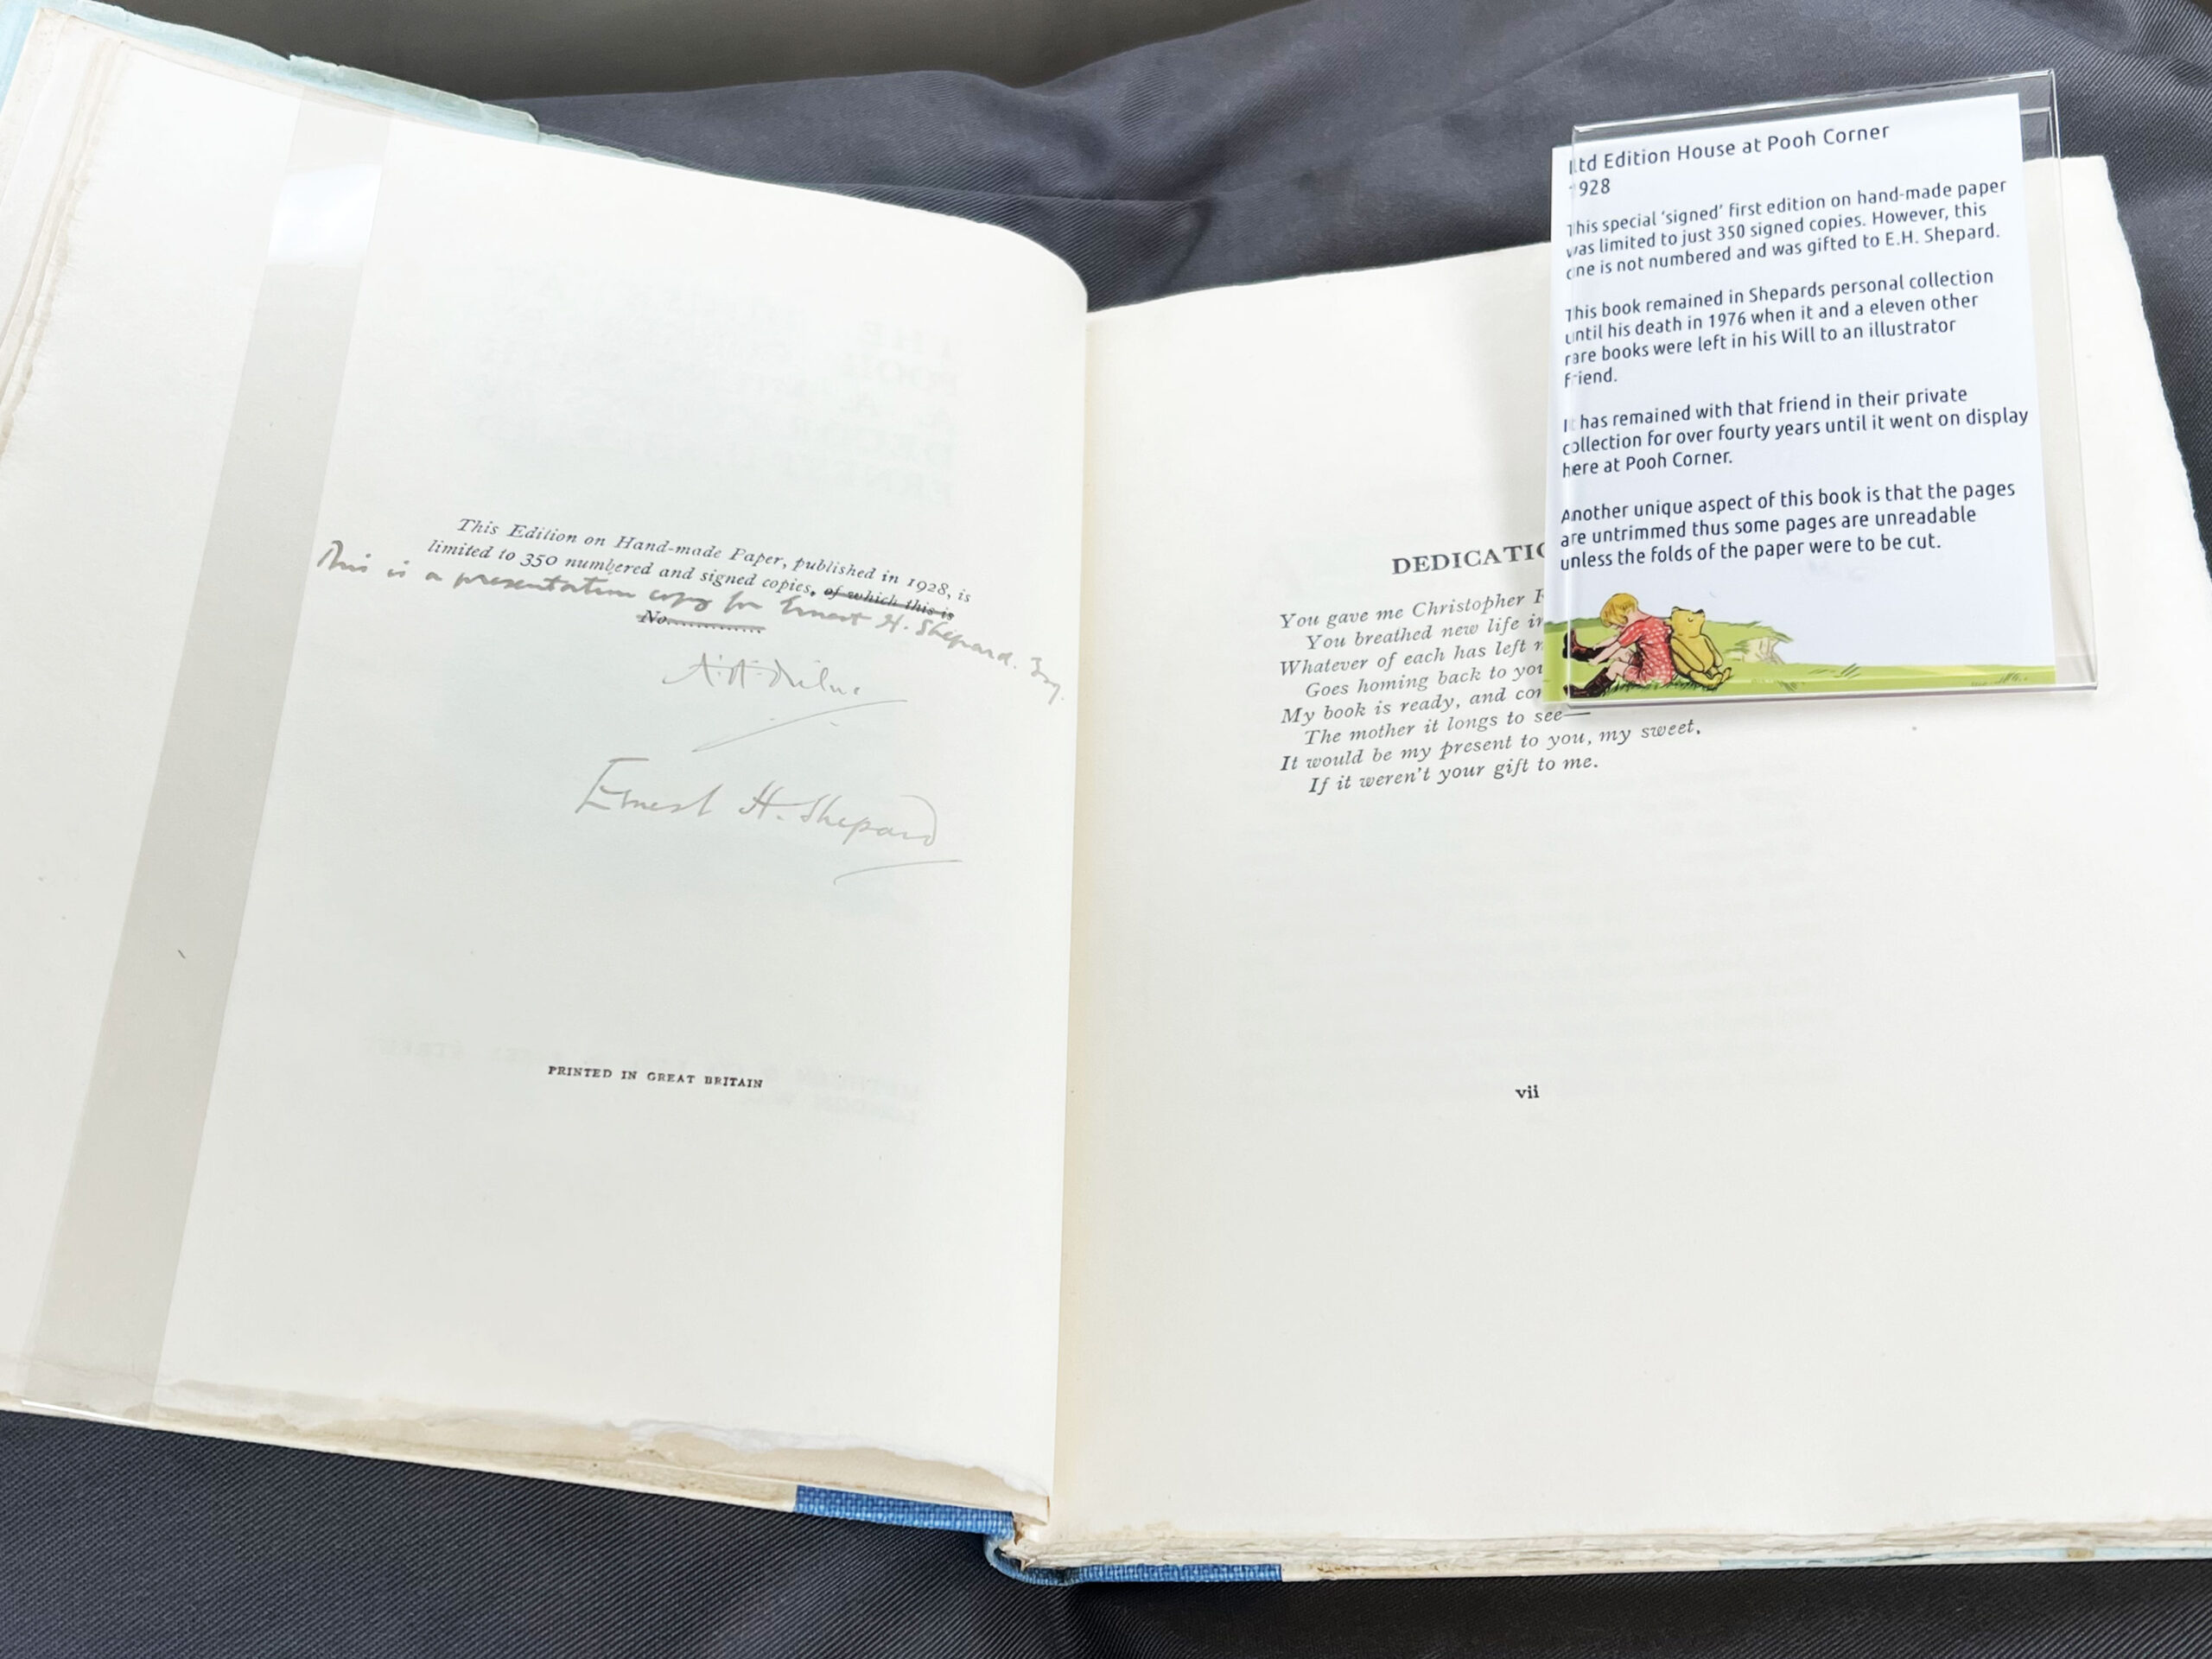 This Edition on Hand-made Paper, published in 1928, is
limited to 350 numbered and signed copies, of which this is
This is a presentation copy for Ernest H. Shepard. Esq.
No..............
A. A. Milne
Ernest H. Shepard
PRINTED IN GREAT BRITAIN
DEDICATIO
You gave me Christopher R
You breathed new life in
Whatever of each has left
Goes homing back to you
My book is ready, and com
The mother it longs to see—
It would be my present to you, my sweet,
If it weren't your gift to me.
vii
Ltd Edition House at Pooh Corner
1928
This special 'signed' first edition on hand-made paper
was limited to just 350 signed copies. However, this
one is not numbered and was gifted to E.H. Shepard.
This book remained in Shepards personal collection
until his death in 1976 when it and a eleven other
rare books were left in his Will to an illustrator
friend.
It has remained with that friend in their private
collection for over fourty years until it went on display
here at Pooh Corner.
Another unique aspect of this book is that the pages
are untrimmed thus some pages are unreadable
unless the folds of the paper were to be cut.